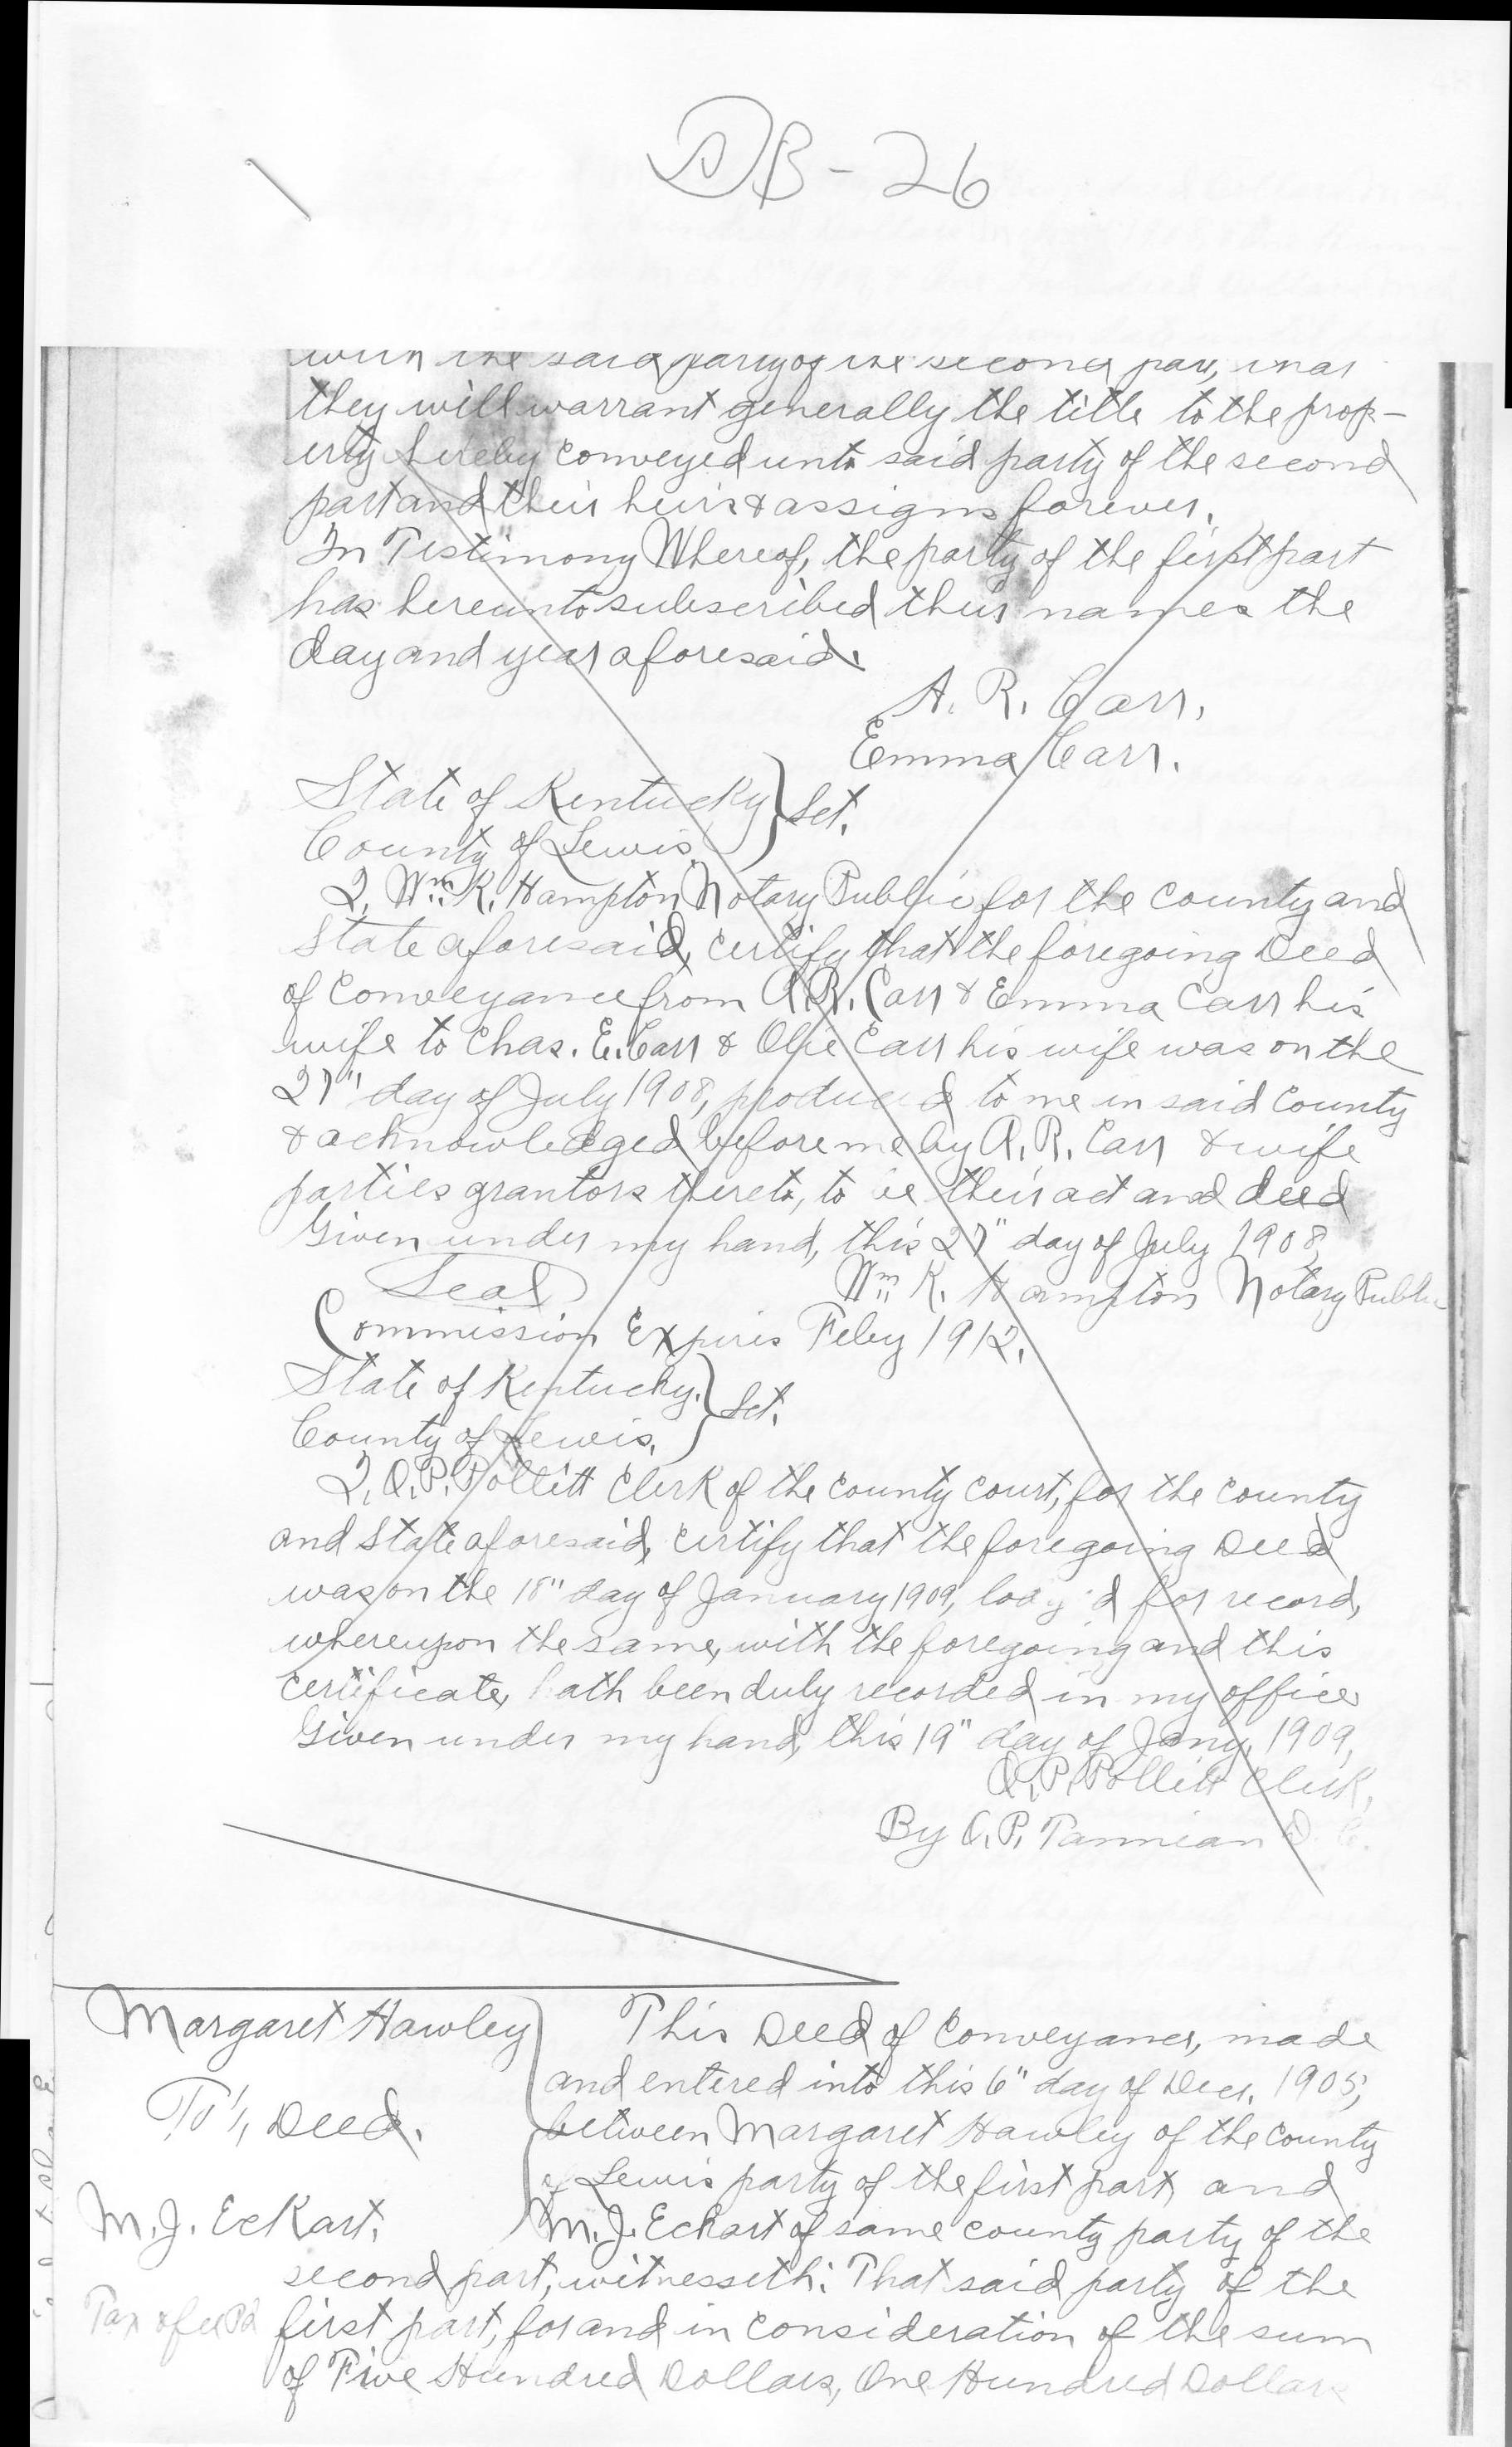 DB-26
with the said party of the second part, that
they will warrant generally the title to the prop-
erty hereby conveyed unto said party of the second
part and their heirs & assigns forever.
In Testimony Whereof, the party of the first part
has hereunto subscribed their names the
day and year aforesaid.
A. R. Carr,
Emma Carr.
State of Kentucky } Sct.
County of Lewis.
I, Wm. K. Hampton Notary Public for the county and
State aforesaid, certify that the foregoing Deed
of Conveyance from A. R. Carr & Emma Carr his
wife to Chas. E. Carr & Olie Carr his wife was on the
27" day of July 1908, produced to me in said County
& acknowledged before me by A. R. Carr & wife
parties grantors thereto, to be their act and deed
Given under my hand, this 27" day of July 1908,
Seal Wm. K. Hampton Notary Public
Commission Expires Feby 1912.
State of Kentucky. } Sct.
County of Lewis.
I, O. P. Pollitt Clerk of the county court, for the county
and State aforesaid, certify that the foregoing Deed
was on the 18" day of January 1909, lodged for record,
whereupon the same, with the foregoing and this
certificate, hath been duly recorded in my office
Given under my hand, this 19" day of Jany, 1909,
O. P. Pollitt Clerk,
By O. P. D. C.
Margaret Hawley
To', Deed.
M. J. Eckart.
This Deed of Conveyance, made
and entered into this 6" day of Decr. 1905,
between Margaret Hawley of the county
of Lewis party of the first part, and
M. J. Eckart of same county party of the
second part, witnesseth: That said party of the
Tax & fee Pd
first part, for and in consideration of the sum
of Five Hundred Dollars, One Hundred Dollars